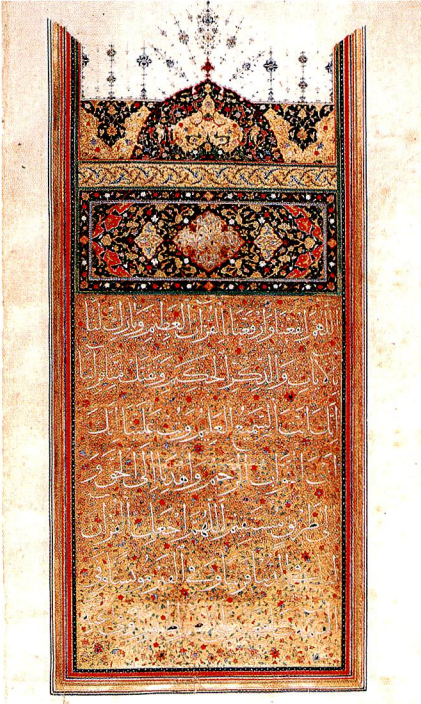 اللهم انفعنا وارفعنا بالقرآن العظيم وبارك لنا
بالآيات والذكر الحكيم وتقبل
إنك أنت السميع العليم وتب علينا إنك
أنت التواب الرحيم واهدنا إلى الحق و
إلى طريق مستقيم اللهم اجعل القرآن
لنا في الدنيا قرينا وفي القبر مونسا وفي